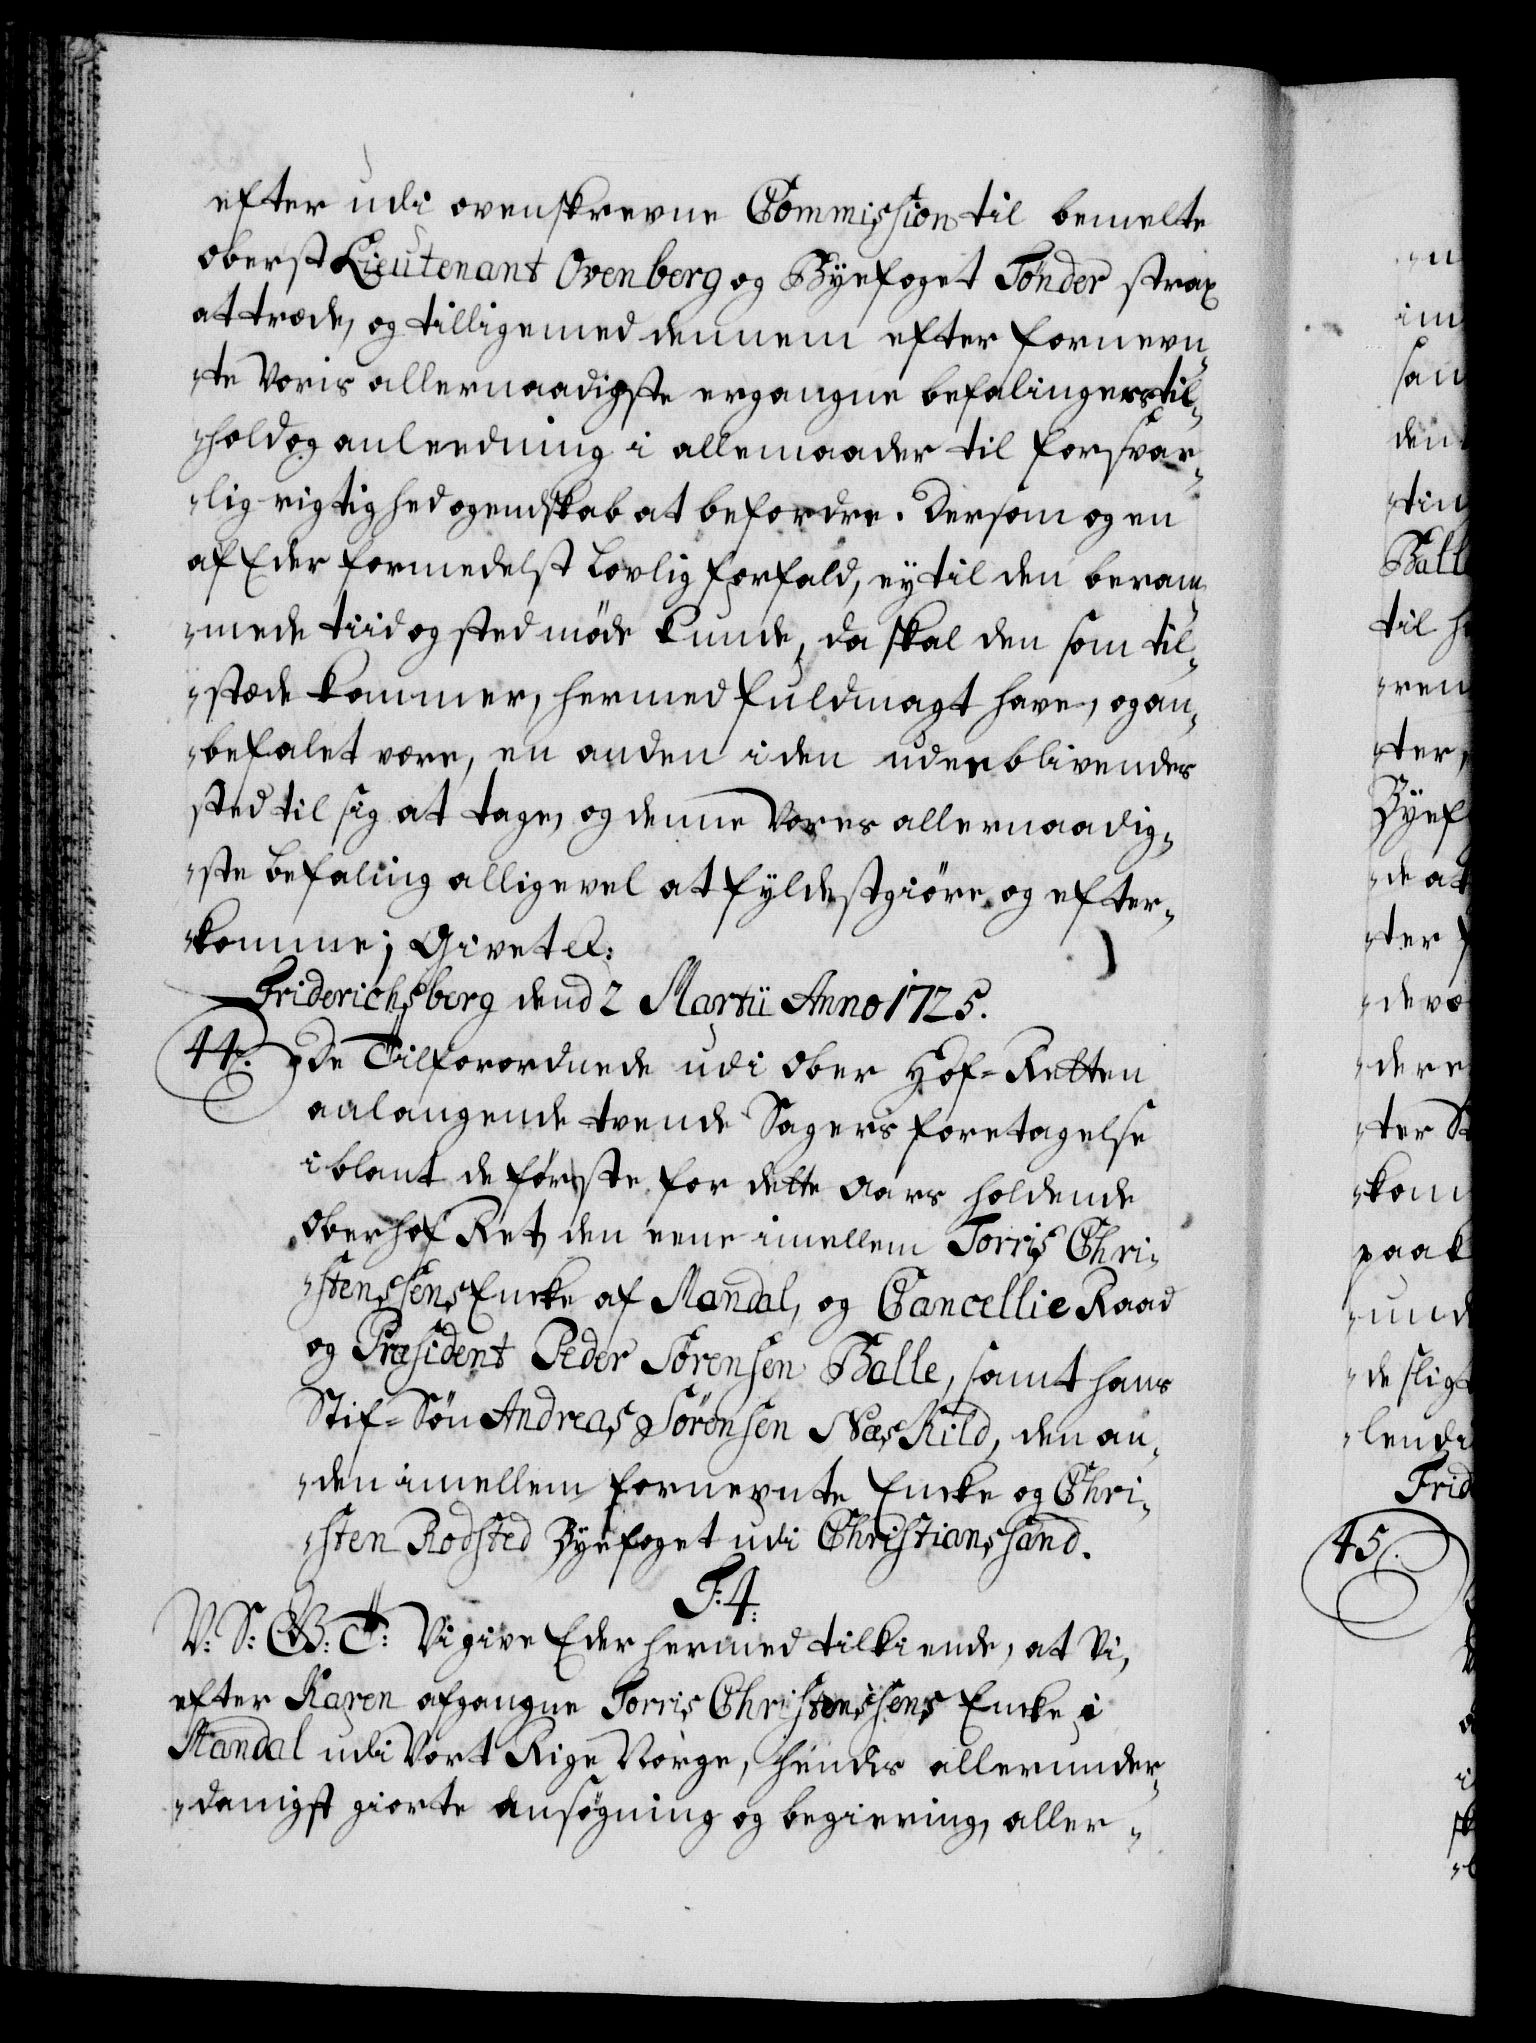 efter udi ovenskrevne Commission til bemelte
Oberst Lieutenant Ovenberg og Byefoget Tønder strax
at træde, og tilligemed dennem efter fornevn„
„te Voris allernaadigste ergangne befalingers til„
„hold og anleedning i allemaader til forsvar„
„lig rigtighed og endskab at befordre. Dersom og en
af Eder formedelst Lovlig forfald, ey til den beram„
„mede tiid og sted møde kunde, da skal den som til„
„stæde kommer, hermed fuldmagt have, og an„
„befalet være, en anden i den udeeblivendes
sted til sig at tage, og denne Vores allernaadig„
„ste befaling alligevel at fyldestgiøre og efter„
„komme; Givet etc:
Friderichsberg dend 2 Martii Anno 1725.
44. De Tilforordnede udi Ober Hof-Retten
anlangende tvende Sagers foretagelse
iblant de første for dette Aars holdende
Oberhof Ret, den eene imellem Torris Chri„
„stenssens Encke af Mandal, og Cancellie Raad
og Præsident Peder Sørensen Balle, samt hans
Stif-Søn Andreas Sørensen Næskild, den an„
„den imellem fornevnte Encke og Chri„
„sten Rodsted Byefoget udi Christianssand.
F:4.
V: S: G: T: Vi give Eder hermed tilkiende, at Vi,
efter Karen afgangne Torris Christenssens Encke i
Mandal udi Vort Rige Norge, hendes allerunder„
„danigst giorte Ansøgning og begiering, aller„
45.